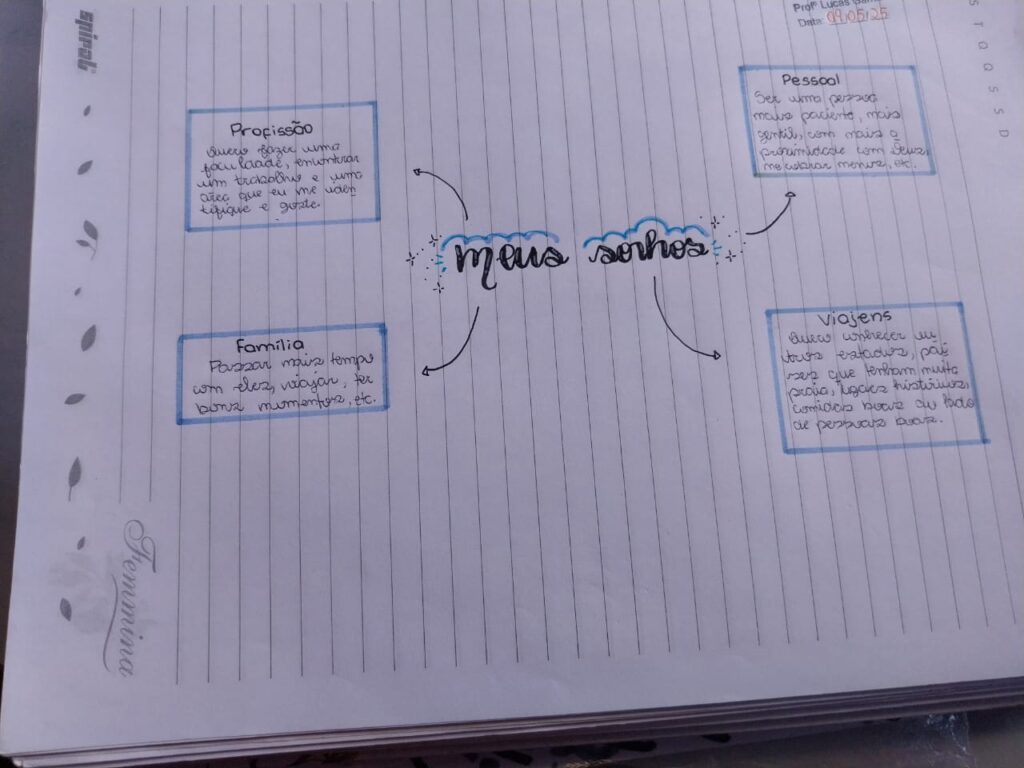 spiral
Profº Lucas
Data: 09/05/25
S T Q Q S S D
Meus sonhos
Profissão
Quero fazer uma
faculdade, encontrar
um trabalho e uma
área que eu me iden
tifique e goste.
Pessoal
Ser uma pessoa
mais paciente, mais
gentil, com mais
proximidade com Deus,
me cobrar menos, etc.
Família
Passar mais tempo
com eles, viajar, ter
bons momentos, etc.
Viajens
Quero conhecer ou
tros estados, paí
ses que tenham muita
praia, lugares históricos,
comidas boas ao lado
de pessoas boas.
Femmina